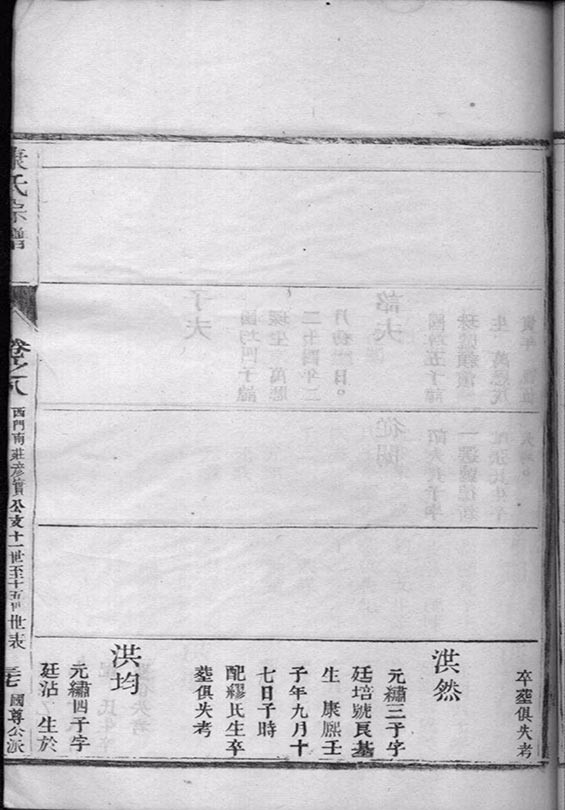 卒塟俱失考
洪然
元繡三子字
廷培號艮基
生 康熙壬
子年九月十
七日子時
配繆氏生卒
塟俱失考
洪均
元繡四子字
廷沾 生於
氏宗譜
卷之八
西門南莊彦賓公支十一世至十五世世表
國尊公派